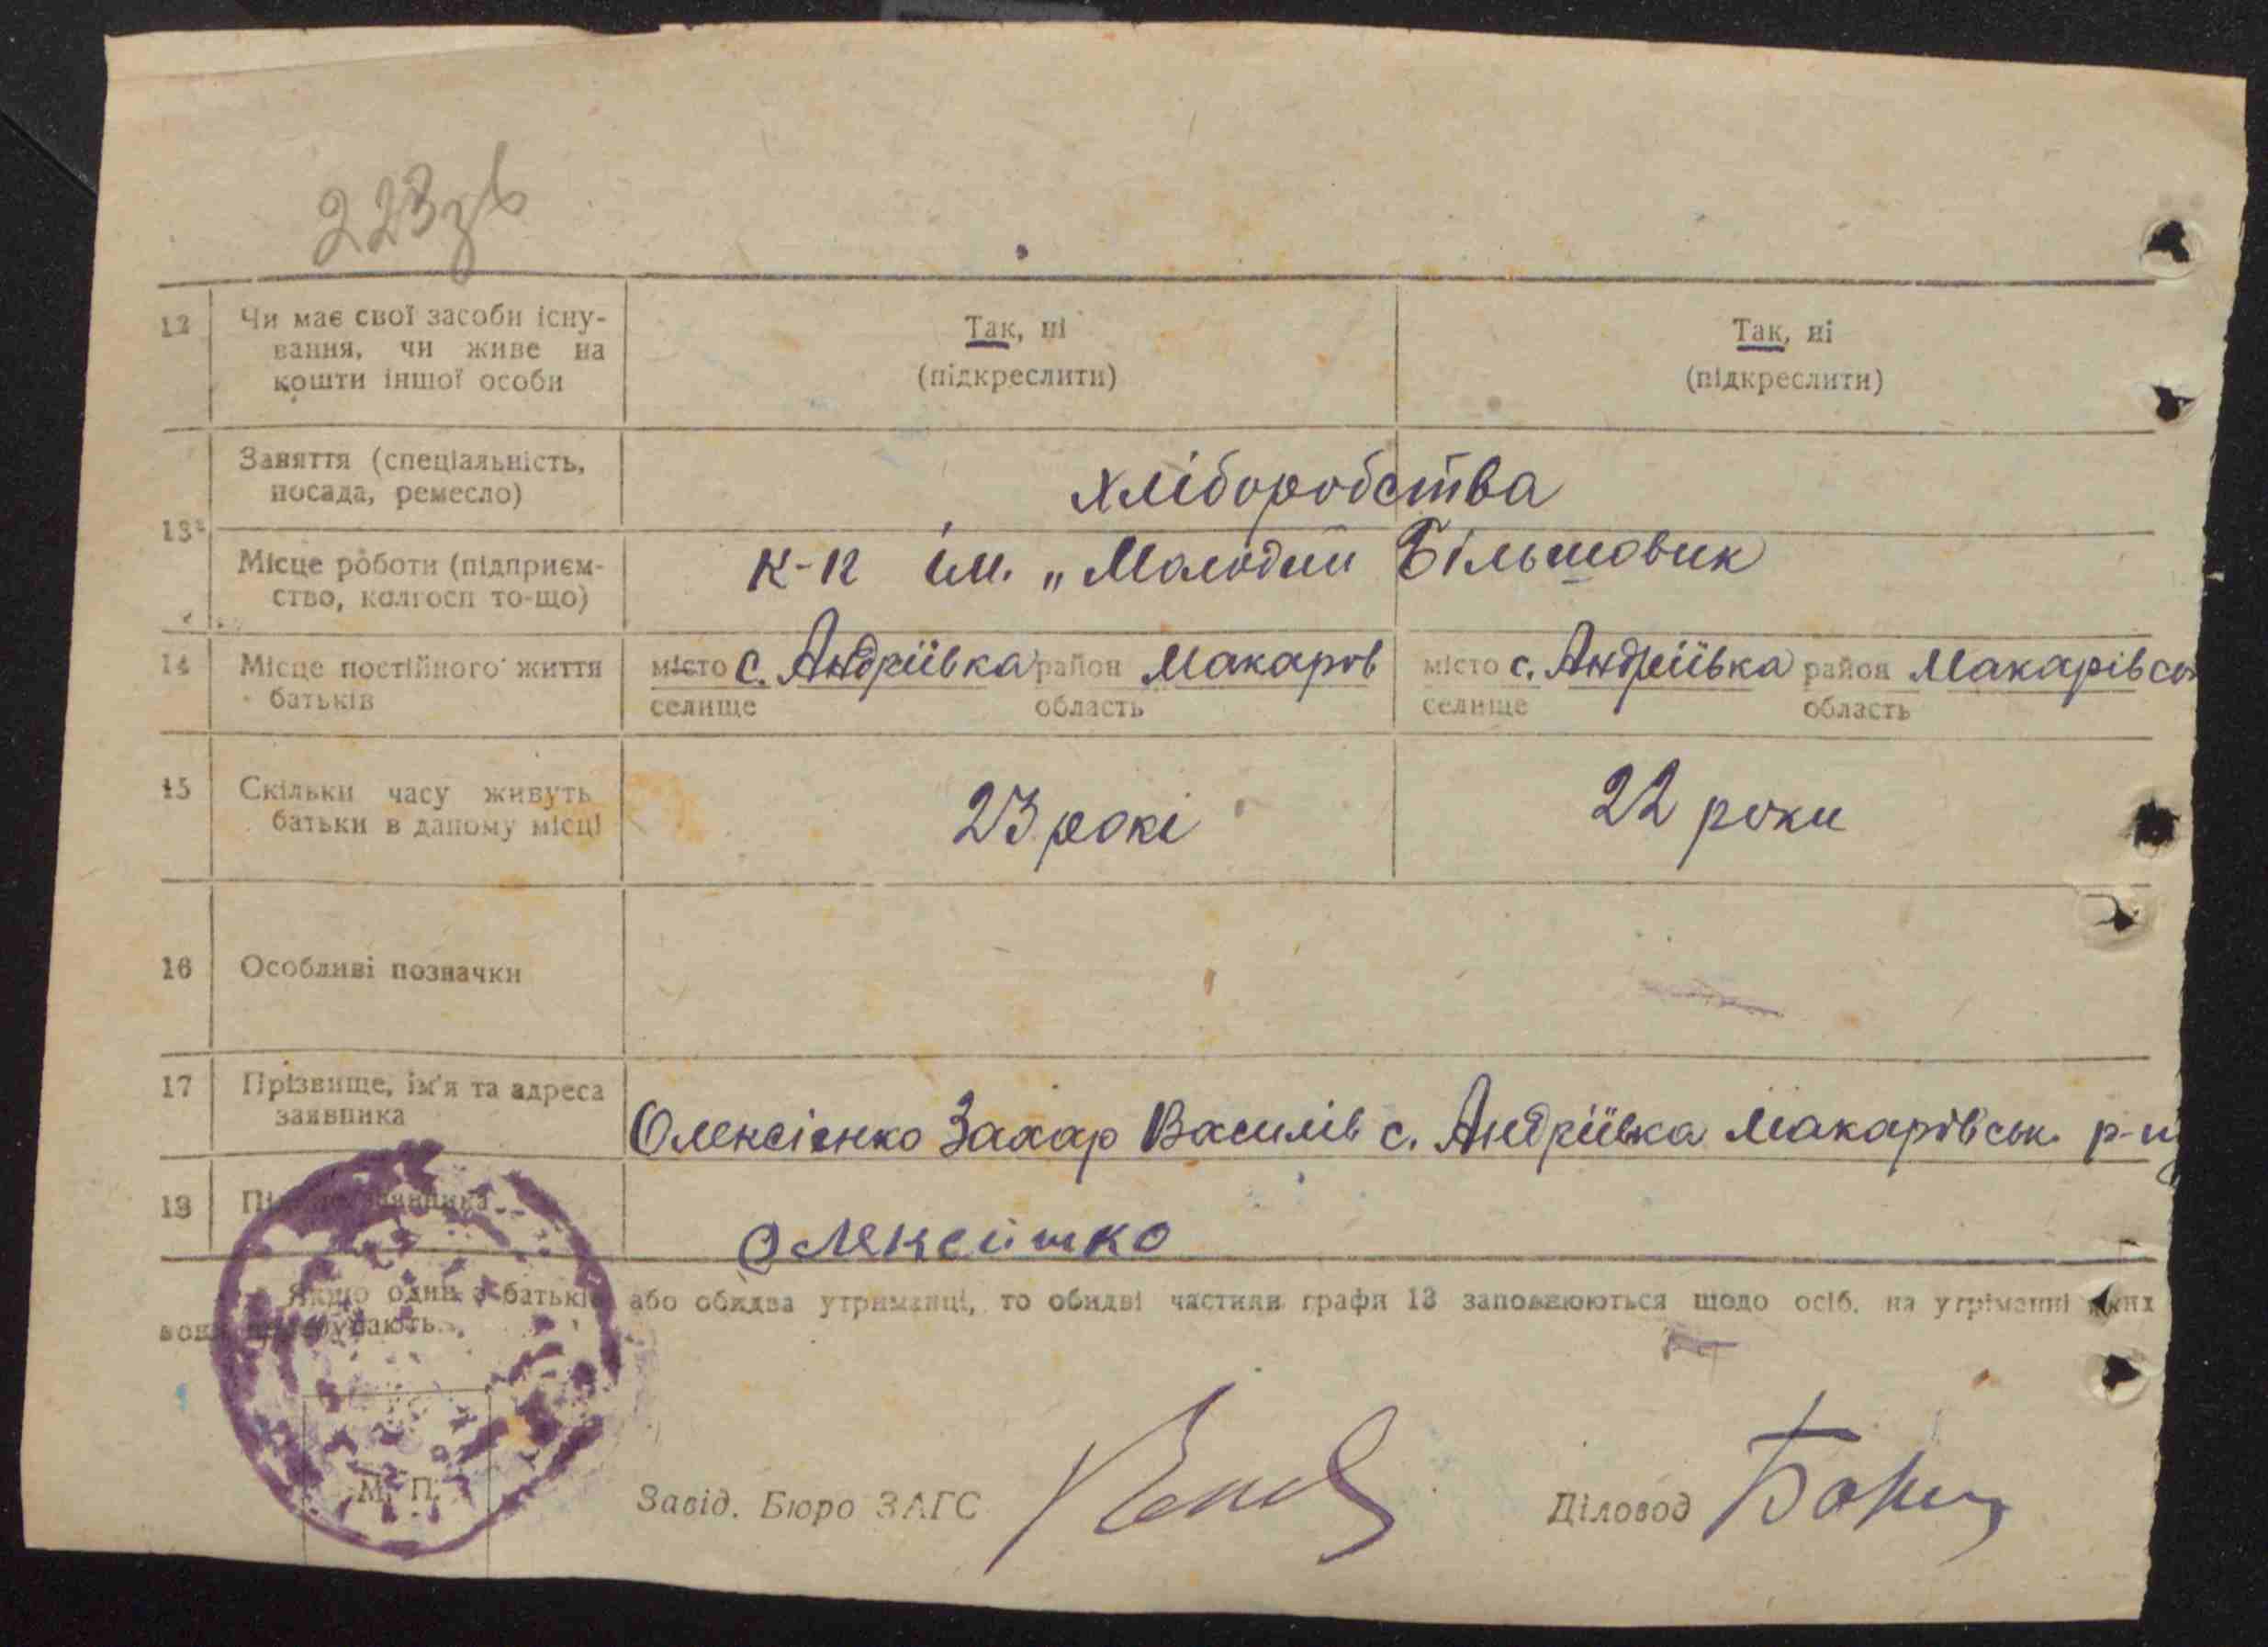 223зв
12 Чи має свої засоби існу- Так, ні Так, ні
вання, чи живе на
кошти іншої особи (підкреслити) (підкреслити)
Заняття (спеціальність,
посада, ремесло) хліборобства
13
Місце роботи (підприєм- к-п ім. „Молодий Більшовик
ство, колгосп то-що)
14 Місце постійного життя місто с. Андріївка район Макаров місто с. Андріївка район Макарівськ
батьків селище область селище область
15 Скільки часу живуть 23 рокі 22 роки
батьки в даному місці
16 Особливі позначки
17 Прізвище, ім'я та адреса
заявника Олексієнко Захар Василів с. Андріївка Макарівськ. р-н
18 Підпис заявника
Якщо один з батьків або обидва утриманці, то обидві частини графи 13 заповнюються щодо осіб, на утріманні яких
вони перебувають.
М. П.
Завід. Бюро ЗАГС Діловод